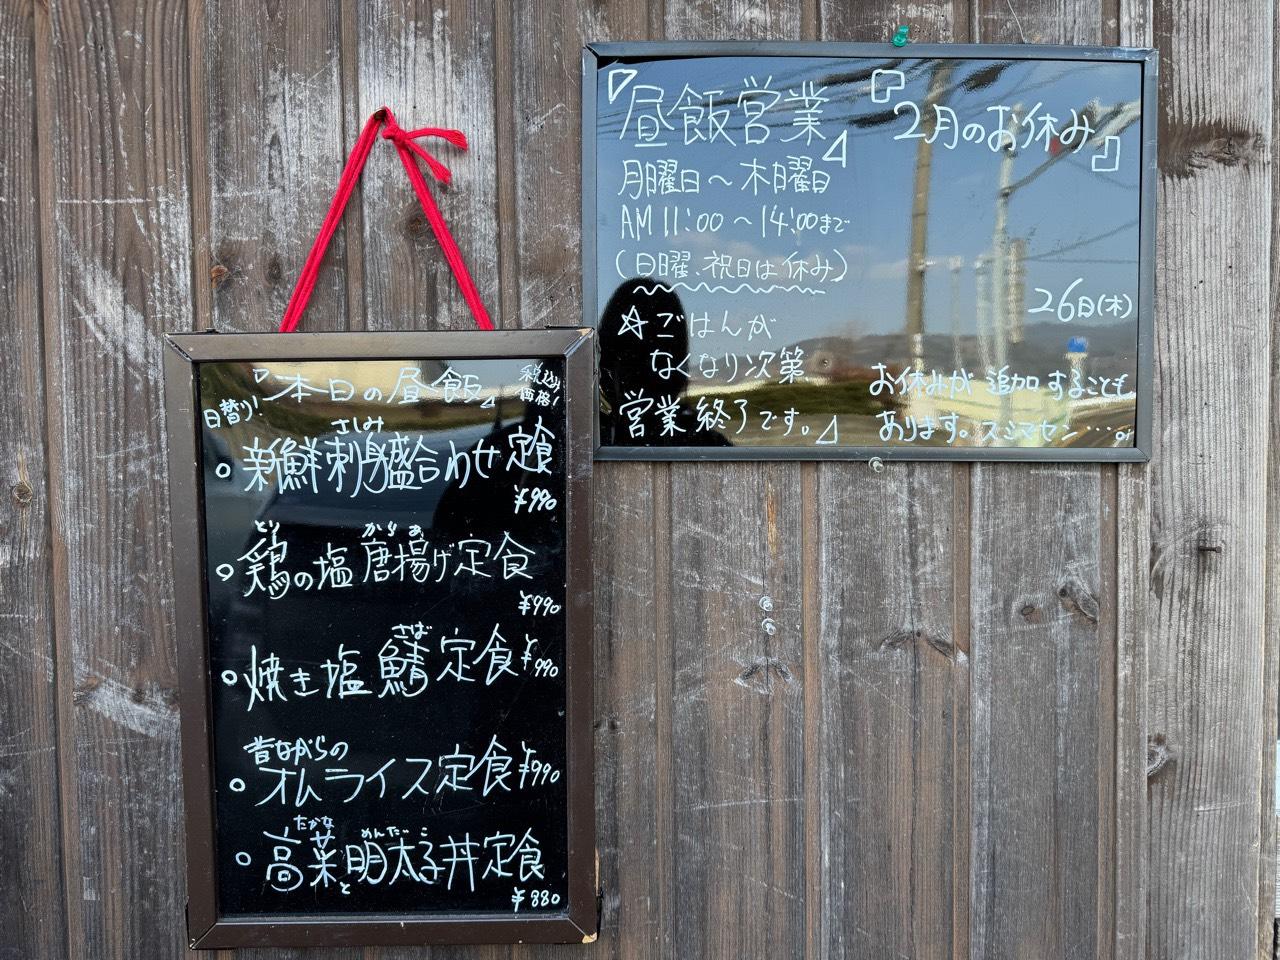 『本日の昼飯』
税込み
価格！
日替り！
さしみ
○新鮮刺身盛合わせ定食
¥990
とり からあ
○鶏の塩唐揚げ定食
¥990
さば
○焼き塩鯖定食¥990
昔ながらの
○オムライス定食¥990
たかな めんたいこ
○高菜と明太子丼定食
¥880
『昼飯営業』
月曜日～木曜日
AM11:00～14:00まで
(日曜、祝日は休み)
☆ごはんが
なくなり次第
営業終了です。』
『2月のお休み』
26日(木)
お休みが追加することも
あります。スミマセン…。